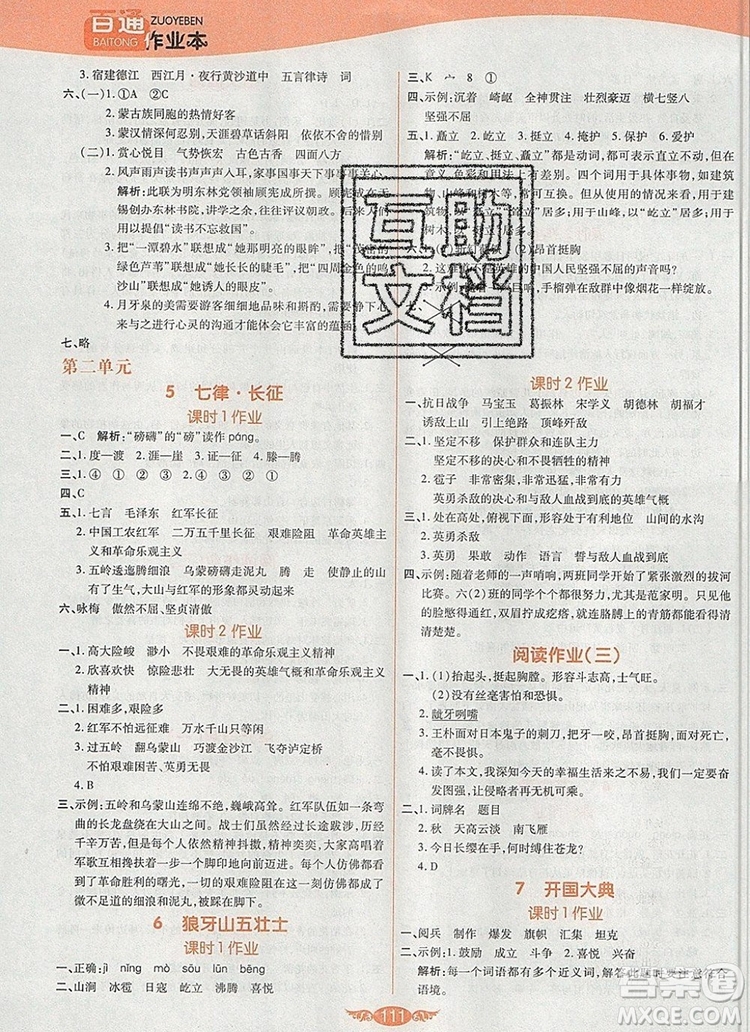 百通
BAITONG
ZUOYEBEN
作业本
3. 宿建德江 西江月·夜行黄沙道中 五言律诗 词
六、(一)1. ①A ②C
2. 蒙古族同胞的热情好客
3. 蒙汉情深何忍别,天涯碧草话斜阳 依依不舍的惜别
(二)1. 赏心悦目 气势恢宏 古色古香 四面八方
2. 风声雨声读书声声声入耳,家事国事天下事事事关心。
解析:此联为明东林党领袖顾宪成所撰。顾宪成在无
锡创办东林书院,讲学之余,往往评议朝政。后来人们用以
提倡“读书不忘救国”。
3. 把“一潭碧水”联想成“她那明亮的眼眸”,把“四周的
绿色芦苇”联想成“她长长的睫毛”,把“四周金光的鸣
沙山”联想成“她诱人的眼皮”。
4. 月牙泉的美需要游客细细地品味和斟酌,需要游客与
之进行心灵的沟通才能体会到其中的蕴涵。
七、略
第二单元
5 七律·长征
课时1作业
一、C 解析:“磅礴”的“磅”读作páng。
二、1. 度—渡 2. 涯—崖 3. 证—征 4. 滕—腾
三、1. ④ ① ② ③ 2. ① ② ③ ④
四、C
五、1. 七言 毛泽东 红军长征
2. 中国工农红军 二万五千里长征 艰难险阻 革命英雄主
义和革命乐观主义
3. 五岭逶迤腾细浪 乌蒙磅礴走泥丸 腾 走 使静止的山
动了起来,大山与红军的形象都灵动了起来
六、咏梅 傲然不屈、坚贞清傲
课时2作业
一、1. 高大险峻 渺小 不畏艰难的革命乐观主义精神
2. 欣喜欢快 惊险悲壮 大无畏的英雄气概及革命乐观主义
精神
二、1. 困难多,艰险多
2. 红军不怕远征难 万水千山只等闲
3. 过五岭 翻乌蒙山 巧渡金沙江 飞夺泸定桥
不怕困难、英勇无畏
4. B
三、示例:五岭和乌蒙山连绵不绝,巍峨高耸。红军队伍如一条弯
曲的长龙盘绕在大山之中。战士们正经历着长途跋涉,历经
千辛万苦的人们依然精神抖擞,满怀革命激情。人们高唱着
军歌互相搀扶着,一个个脚印向前迈动着。每个人仿佛都看
到了革命胜利的曙光,一切艰难险阻在这些英雄面前都成了
微不足道的细浪和泥丸,被踩在脚下。
6 狼牙山五壮士
课时1作业
一、正确:jì níng mò sǒu lǔn bēng
二、山涧 冰雹 日寇 屹立 沸腾 喜悦
三、K 宀 8 ①
四、示例:沉着 崎岖 全神贯注 壮烈豪迈 横七竖八
坚强不屈
五、1. 矗立 2. 屹立 3. 挺立 4. 掩护 5. 保护 6. 爱护
解析:“屹立、挺立、矗立”都是动词,都可表示直立不动,但在
意义、色彩和用法上有些不同。三个词都可用于具体事物,如建
筑物、山峰、树木等,有时也可用于人。从使用的情况来看,用于建
筑物,以“矗立”居多;用于山峰,以“屹立”居多;用于
树木,以“挺立”居多。
2. 这难道不是英雄的中国人民坚强不屈的声音吗?
课时2作业
一、抗日战争 马宝玉 葛振林 宋学义 胡德林 胡福才
诱敌上山 引上绝路 顶峰歼敌
二、1. 坚定不移 保护群众和连队主力
坚定不移的决心和不畏牺牲的精神
2. 雹子 非常密集、非常迅猛
英勇杀敌的决心和与敌人血战到底的英雄气概
三、1. 处在高处,俯视近处。 形容居住分散的地方 山间的水沟
2. 英勇杀敌
3. 英勇 果敢 动作 语言 誓与敌人血战到底
四、示例:随着老师的一声哨响,两班同学开始了紧张激烈的拔河
比赛。六(2)班的同学个个都很勇敢,尤其是范家明。只见他
脸憋得通红,双眉拧成疙瘩,就连胳膊上的青筋都看得清清
楚楚。
阅读作业(三)
一、1. (1)抬起头,挺起胸膛。形容斗志高,士气旺。
(2)没有丝毫害怕和恐惧。
2. 龇牙咧嘴
3. 王朴面对日本鬼子的刺刀,把牙一咬,昂首挺胸,
毫不畏惧。
4. 读了本文,我深深知道今天的幸福生活来之不易,是无
数先烈用鲜血和生命换来的。我们一定要奋发图强,
让侵略者不敢再来侵犯我们。
二、1. 词牌名 题目
2. 秋 天高云淡 南飞雁
3. 今日长缨在手,何时缚住苍龙?
4. D
7 开国大典
课时1作业
一、阅兵 制作 爆发 旗帜 汇集 坦克
二、示例:1. 鼓励 成立 斗争 2. 喜悦 兴奋
解析:每一个词语都有多个近义词,解此题时要注意符合
语境。
111
互助文档
答案圈
MXQE.COM